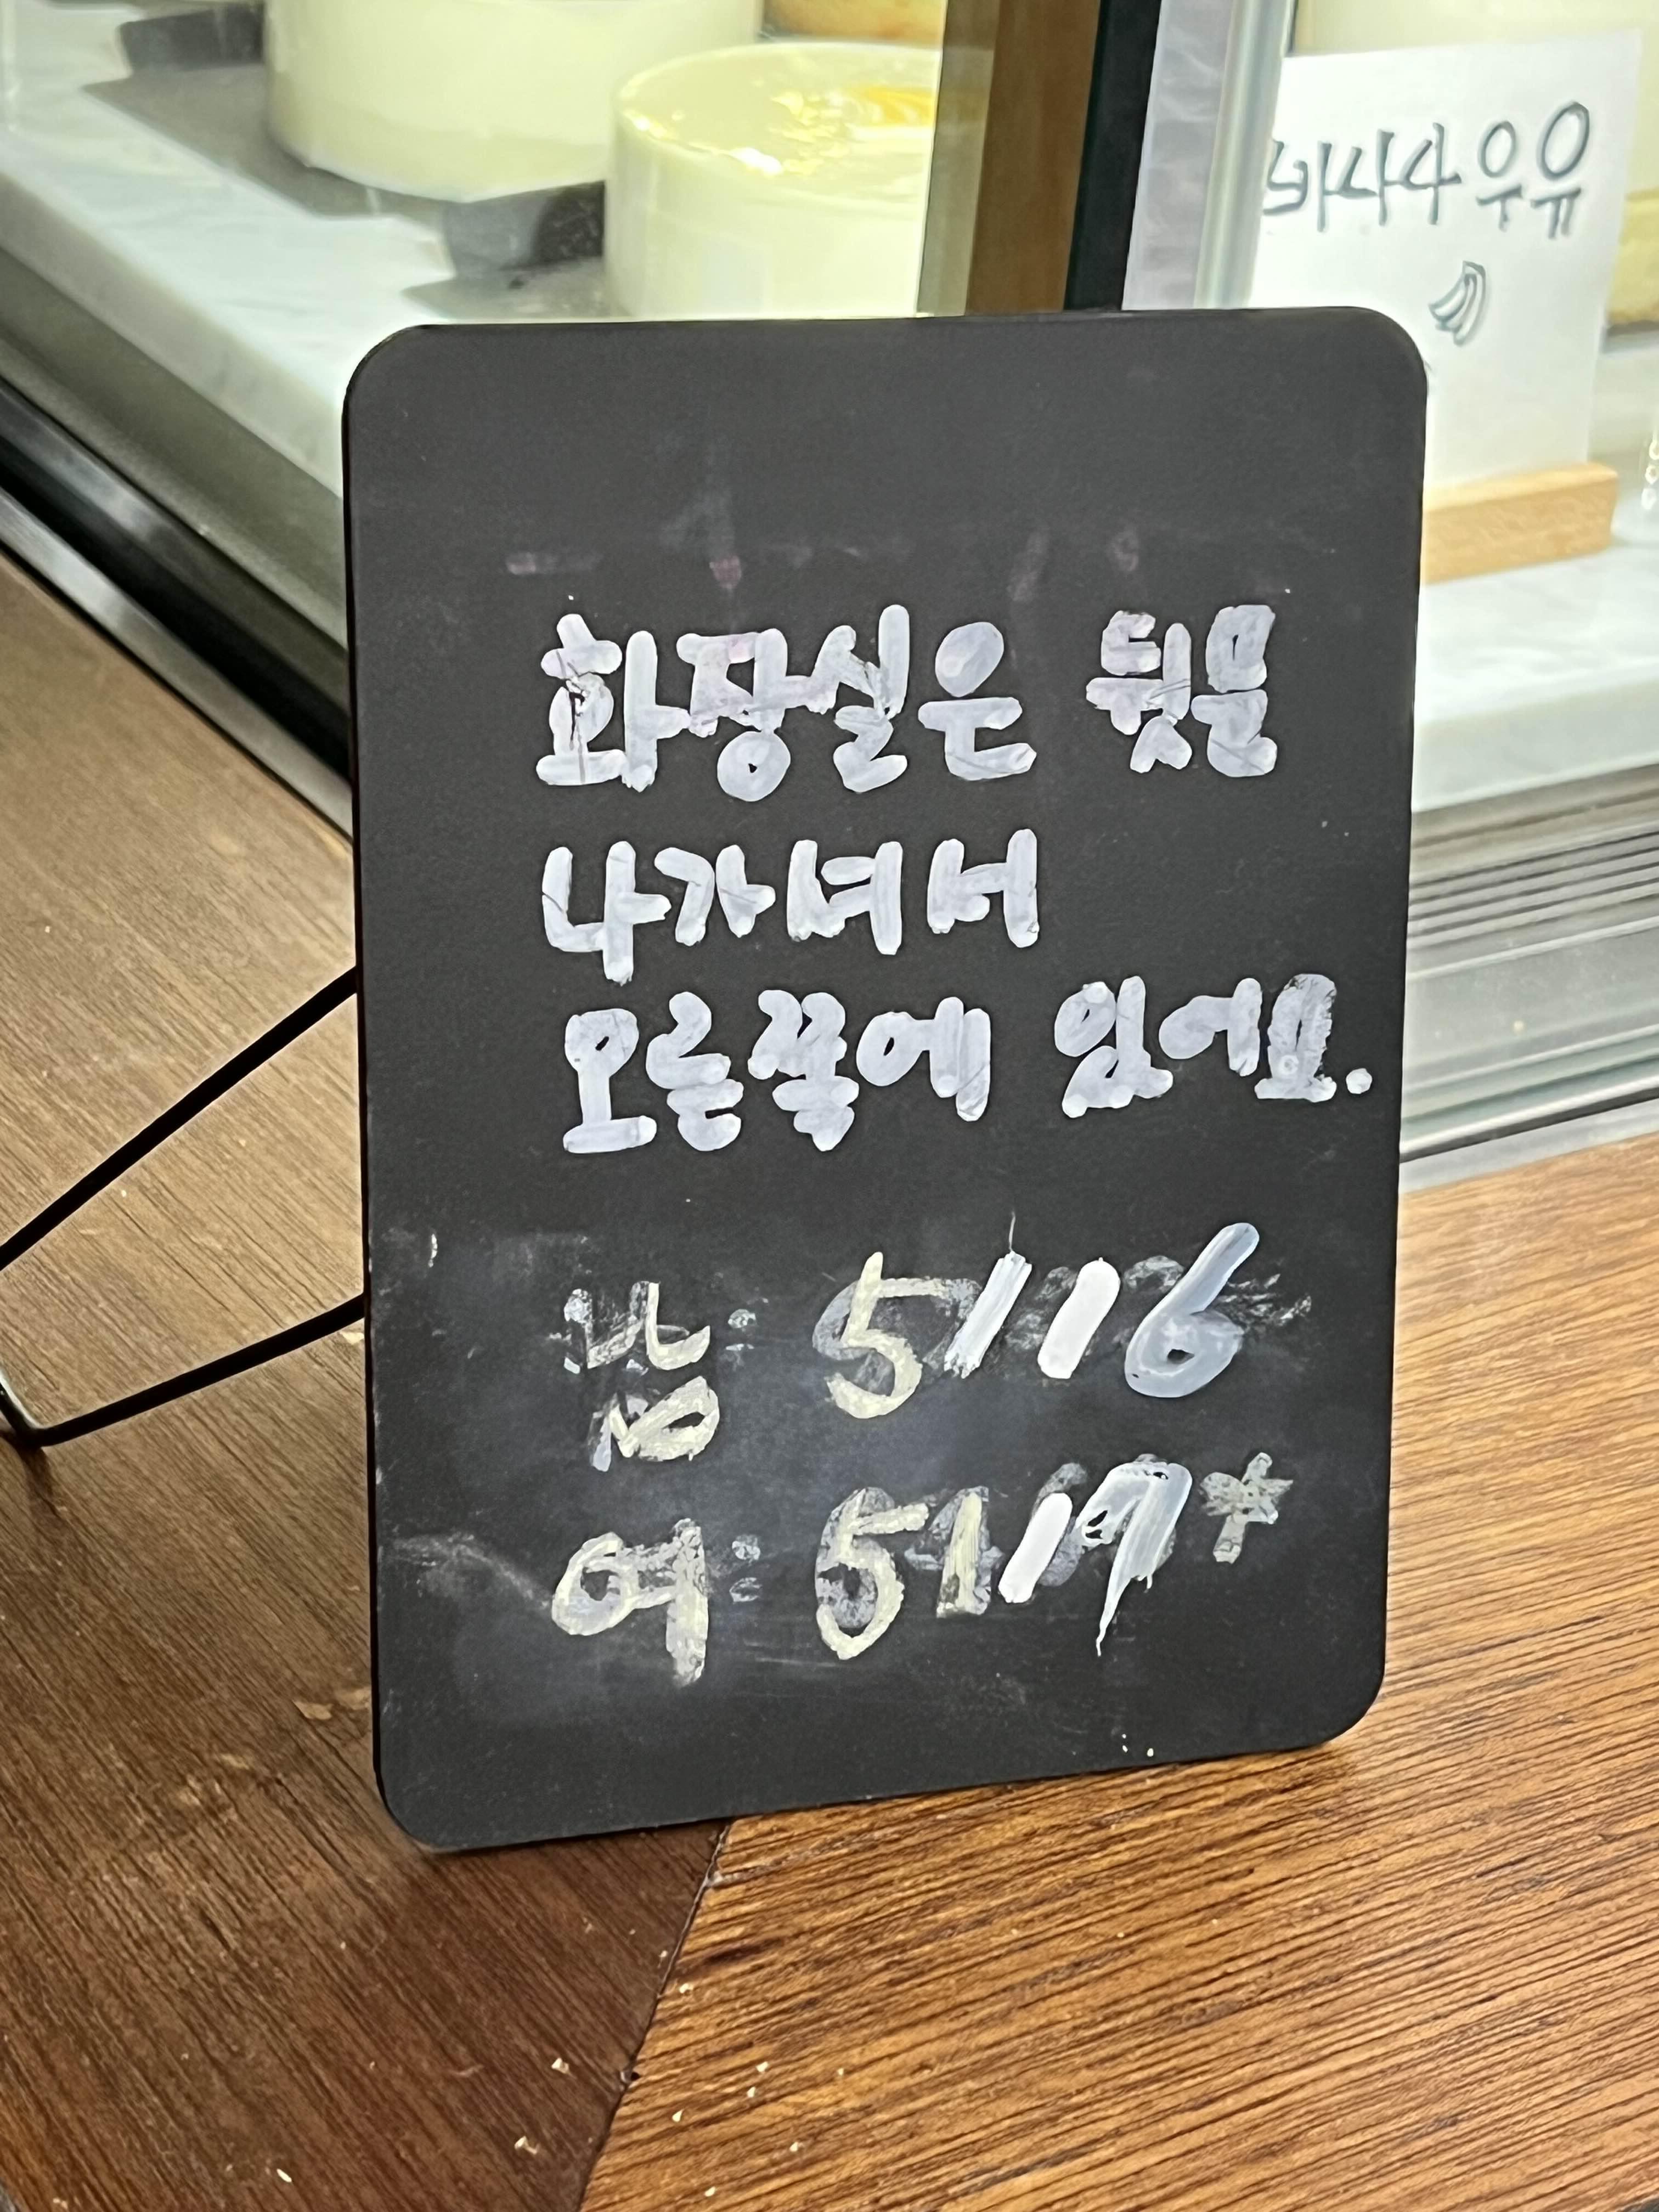 바나나우유
화장실은 뒷문
나가셔서
오른쪽에 있어요.
남: 5116
여: 5117*